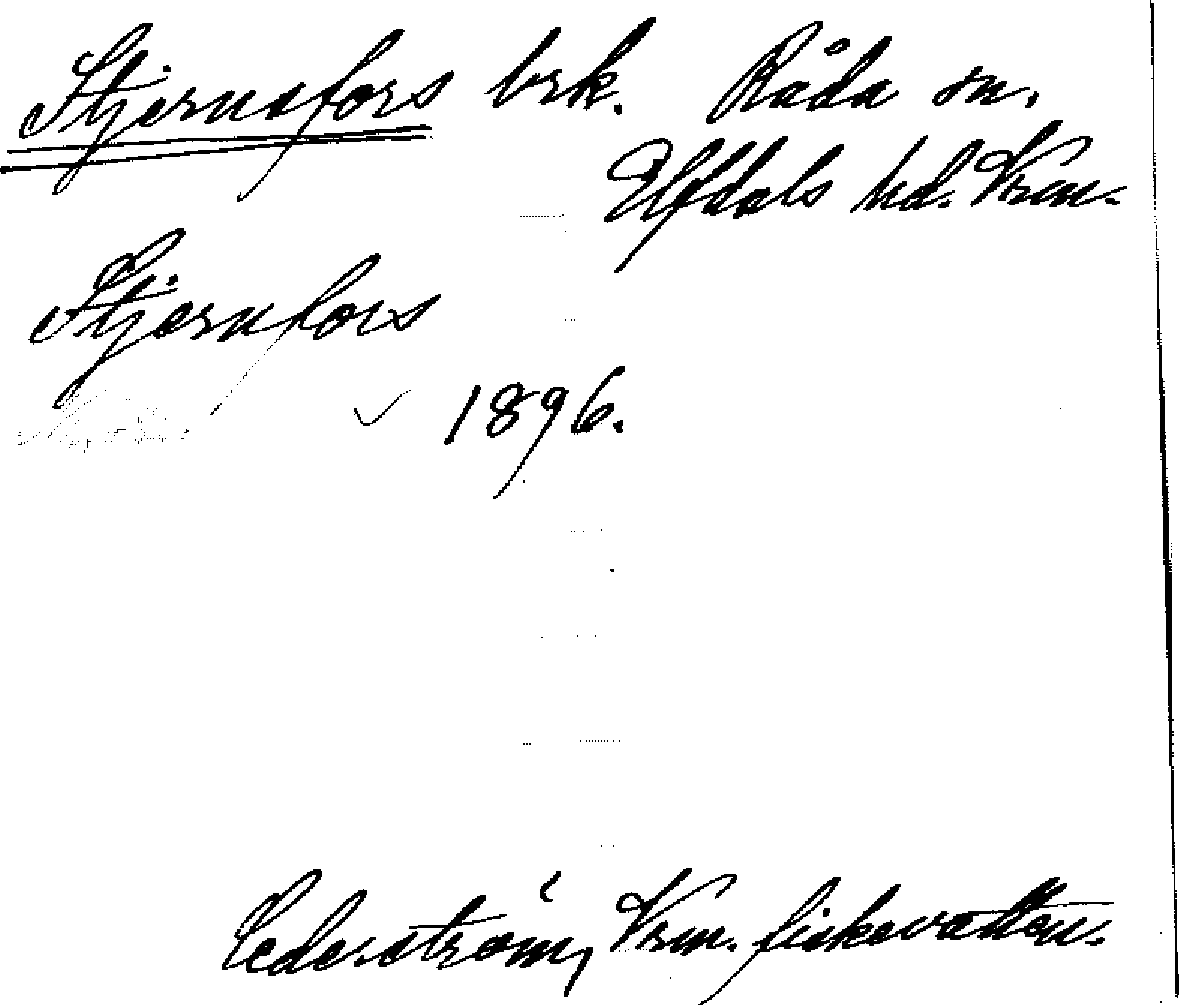 Stjernsfors brk. Råda sn.
Elfdals hd. Vrm.
Stjernfors
1896.
Cederström, Vrm. fiskevatten.